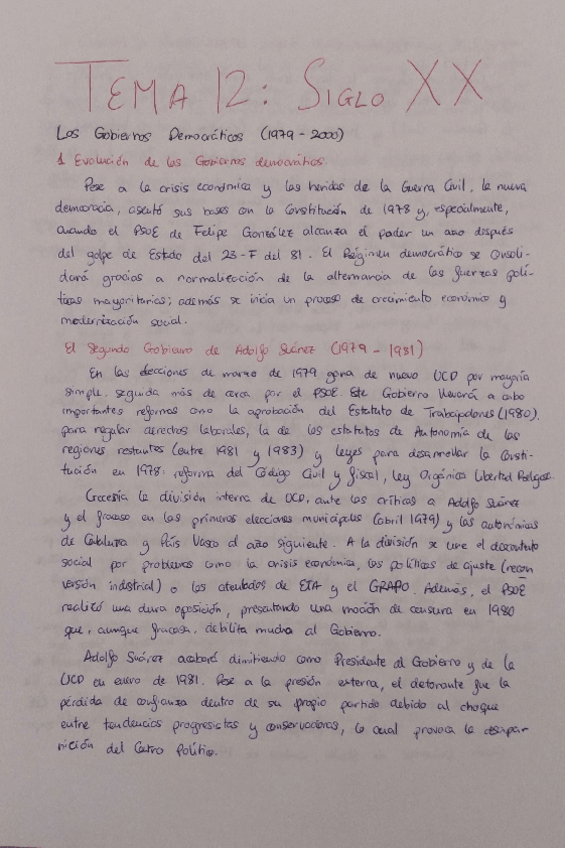 TEMA 12: SIGLO XX
Los Gobiernos Democráticos (1979-2000)
1 Evolución de los Gobiernos democráticos.
Pese a la crisis económica y las heridas de la Guerra Civil, la nueva
democracia, asentó sus bases con la Constitución de 1978 y, especialmente,
cuando el PSOE de Felipe González alcanza el poder un año después
del golpe de Estado del 23-F del 81. El Régimen democrático se consoli-
dará gracias a normalización de la alternancia de las fuerzas polí-
ticas mayoritarias; además se inicia un proceso de crecimiento económico y
modernización social.
El Segundo Gobierno de Adolfo Suárez (1979-1981)
En las elecciones de marzo de 1979 gana de nuevo UCD por mayoría
simple, seguida más de cerca por el PSOE. Este Gobierno llevará a cabo
importantes reformas como la aprobación del Estatuto de Trabajadores (1980),
para regular derechos laborales, la de los estatutos de Autonomía de las
regiones restantes (entre 1981 y 1983) y leyes para desarrollar la Consti-
tución en 1978: reforma del Código Civil y fiscal, Ley Orgánica Libertad Religiosa.
Crecería la división interna de UCD, ante las críticas a Adolfo Suárez
y el fracaso en las primeras elecciones municipales (abril 1979) y las autonómicas
de Cataluña y País Vasco el año siguiente. A la división se une el descontento
social por problemas como la crisis económica, las políticas de ajuste (recon
versión industrial) o los atentados de ETA y el GRAPO. Además, el PSOE
realizó una dura oposición, presentando una moción de censura en 1980
que, aunque fracasa, debilita mucho al Gobierno.
Adolfo Suárez acabará dimitiendo como Presidente del Gobierno y de la
UCD en enero de 1981. Pese a la presión externa, el detonante fue la
pérdida de confianza dentro de su propio partido debido al choque
entre tendencias progresistas y conservadoras, lo cual provoca la desapar
nición del Centro Político.